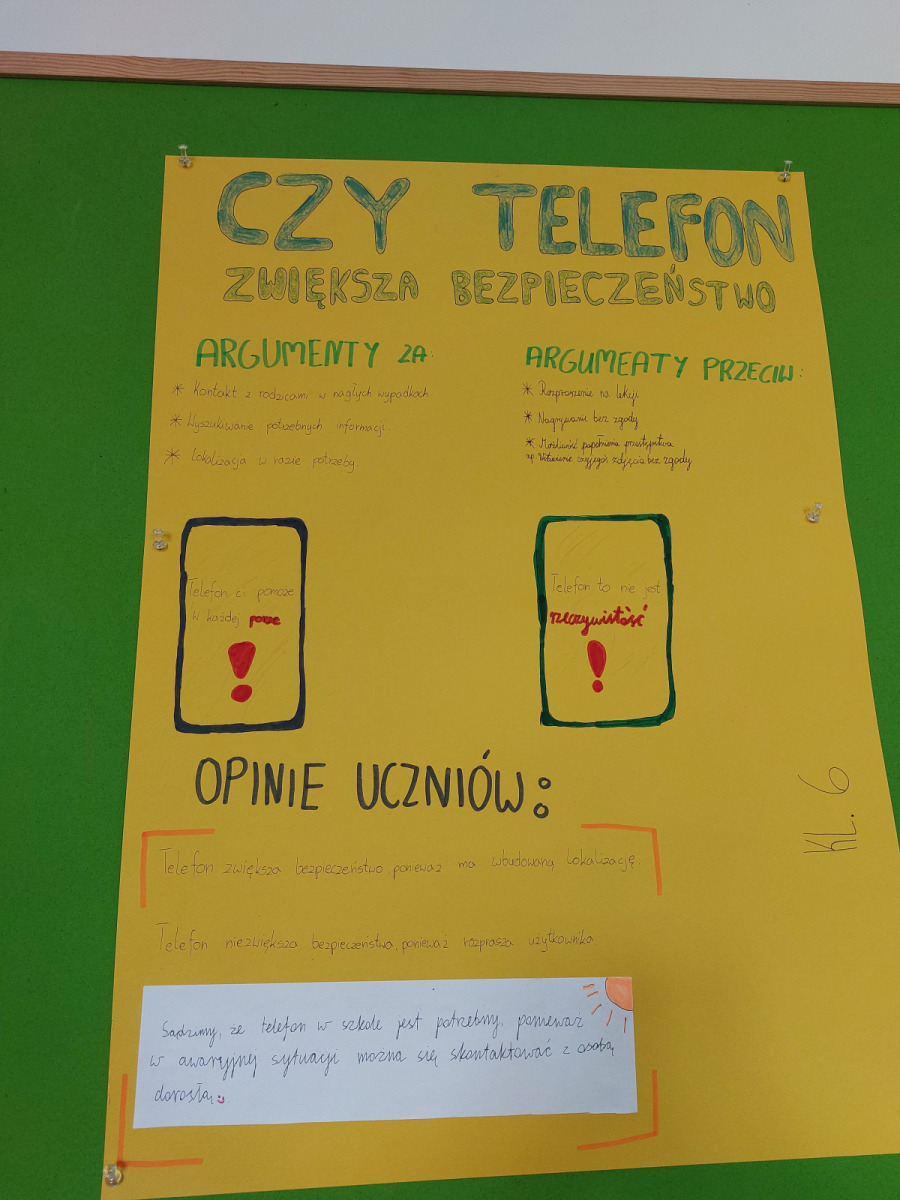 CZY TELEFON
ZWIĘKSZA BEZPIECZEŃSTWO
ARGUMENTY ZA:
* Kontakt z rodzicami w nagłych wypadkach
* Wyszukiwanie potrzebnych informacji.
* Lokalizacja w razie potrzeby.
ARGUMEATY PRZECIW:
* Rozproszenie na lekcji
* Nagrywanie bez zgody
* Możliwość popełnienia przestępstwa
np. Wstawienie czyjegoś zdjęcia bez zgody
Telefon ci pomoże
w każdej
!
Telefon to nie jest
rzeczywistość
!
OPINIE UCZNIÓW:
Telefon zwiększa bezpieczeństwo, ponieważ ma wbudowaną lokalizację.
Telefon niezwiększa bezpieczeństwa, ponieważ rozprasza użytkownika
Sądzimy, że telefon w szkole jest potrzebny, ponieważ
w awaryjnej sytuacji można się skontaktować z osobą
dorosłą.
KL. 6